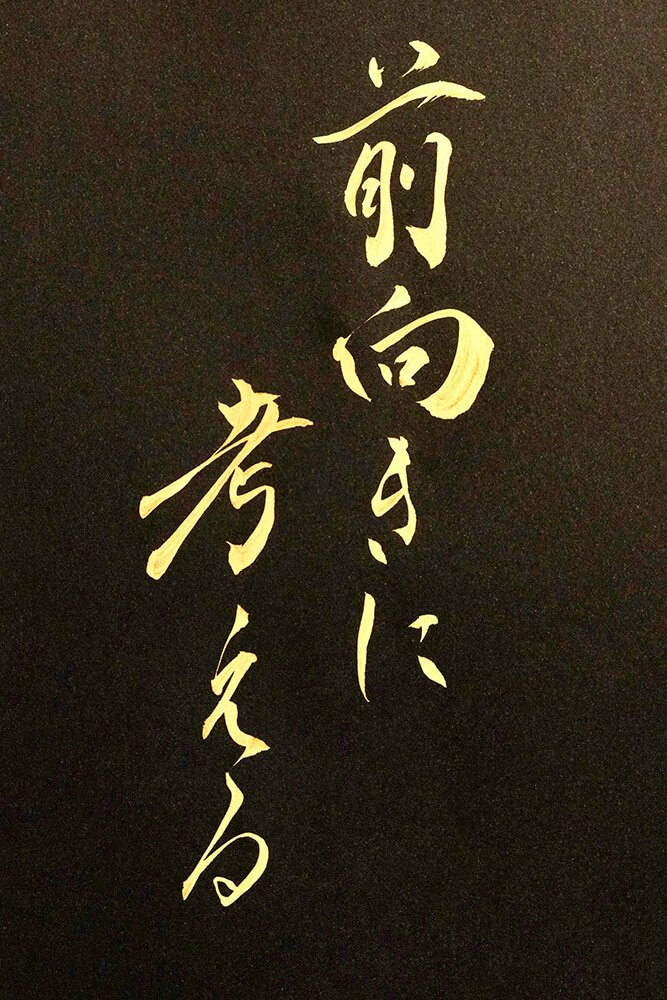 前向きに
考える